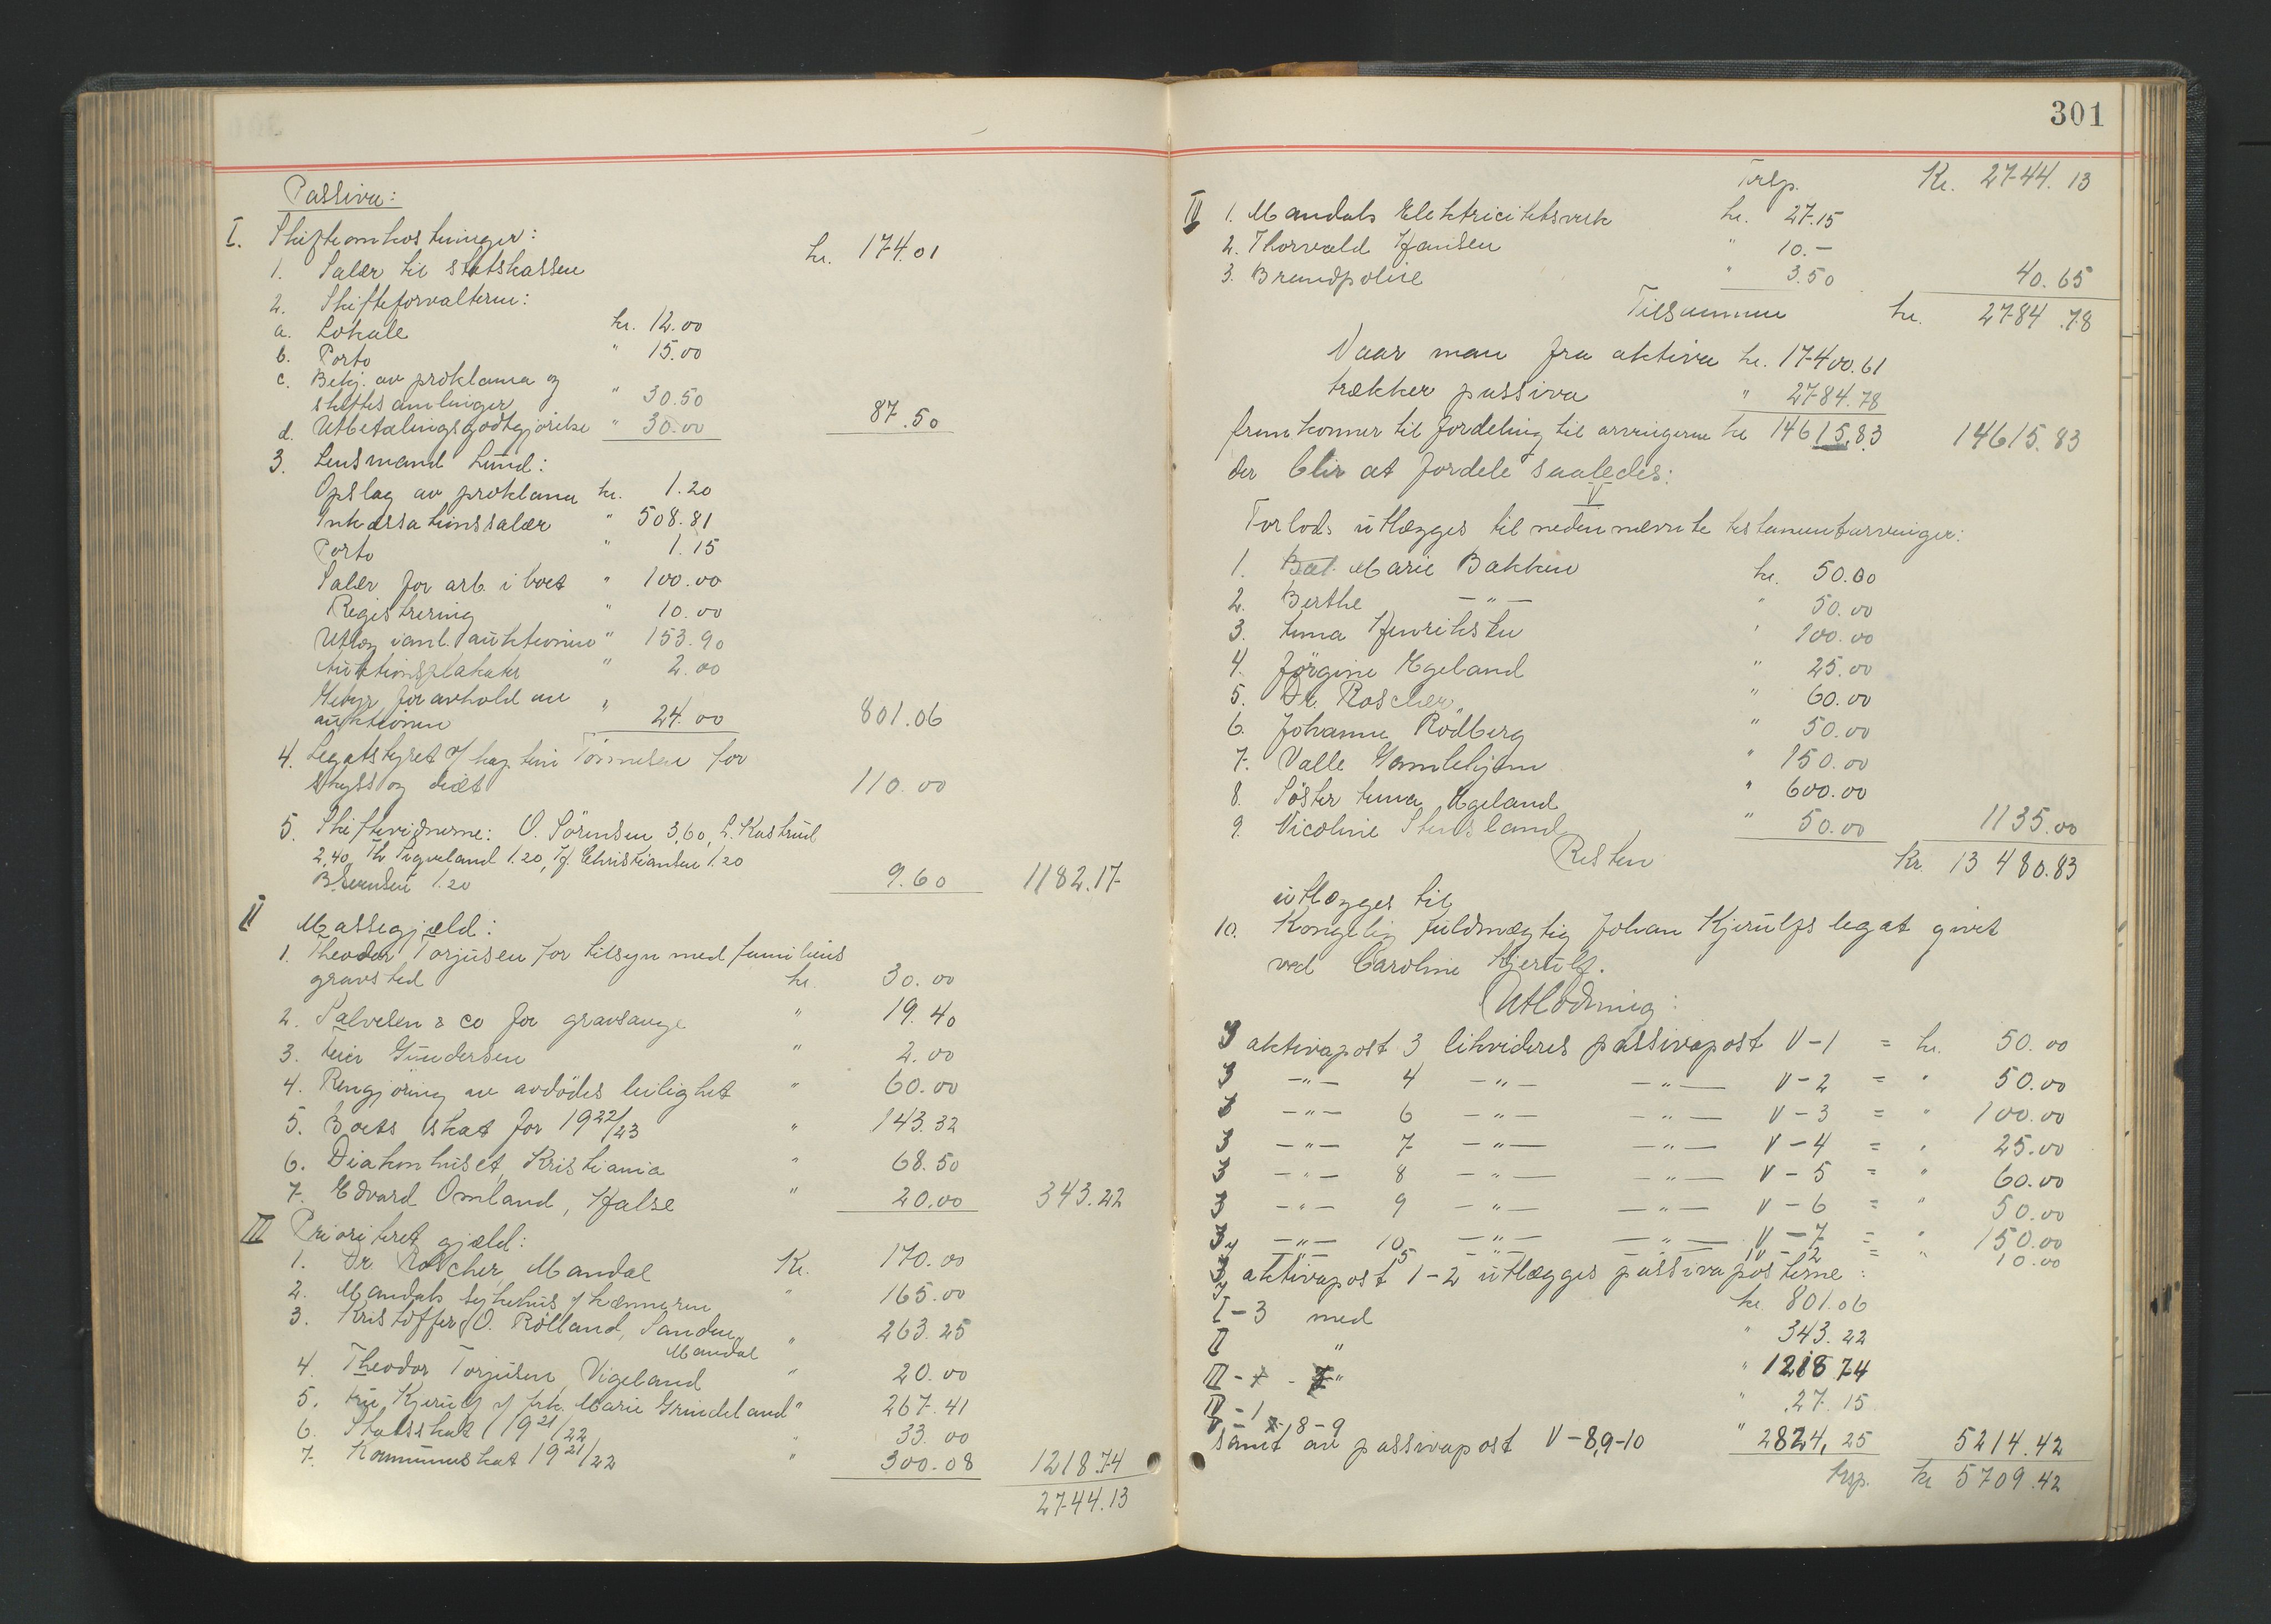 Passiva:
I. Skifteomkostninger:
1. Salær til statskassen kr. 174.01
2. Skifteforvalteren:
a. Lokale kr. 12.00
b. Porto " 15.00
c. Bekj. av proklama og
skiftesamlinger " 30.50
d. Utbetalingsgodtgjørelse " 30.00 87.50
3. Lensmand Lund:
Opslag av proklama kr. 1.20
Inkassationssalær " 508.81
Porto " 1.15
Salær for arb. i boet " 100.00
Registrering " 10.00
Utlæg i anl. auktionen " 153.90
Auktionsplakater " 2.00
Gebyr for avhold av
auktionen " 24.00 801.06
4. Legatstyret v/ kap. tein Tönnesen for
skyss og diæt 110.00
5. Skiftevidnerne: O. Sörensen 3,60, L. Kastrud
2,40, Th Tregveland 1.20, H. Christiansen 1.20
B. Serensen 1.20 9.60 1182.17
II Massegjæld:
1. Theodor Torjusen for tilsyn med familiens
gravsted kr. 30.00
2. Salvesen & co for gravsange " 19.40
3. Gundersen " 2.00
4. Rengjöring av avdödes leilighet " 60.00
5. Boets skat for 1922/23 " 143.32
6. Diakonhuset, Kristiania " 68.50
7. Edvard Omland, Halse " 20.00 343.22
III Prioritert gjæld:
1. Dr Roscher, Mandal Kr. 170.00
2. Mandals sykehus v/ kæmneren " 165.00
3. Kristoffer O. Rölland, Sanden,
Mandal " 263.25
4. Theodor Torjusen, Vigeland " 20.00
5. Fru Kjerulf v/ frk. Marie Grindeland " 267.41
6. Statsskat 1921/22 " 33.00
7. Kommuneskat 1921/22 " 300.08 1218.74
2744.13
301
Trsp. Kr. 2744.13
IV 1. Mandals Elektricitetsverk kr. 27.15
2. Thorvald Hansen " 10.—
3. Brandpolise " 3.50 40.65
Tilsammen kr. 2784.78
Naar man fra aktiva kr. 17400.61
trækker passiva " 2784.78
fremkommer til fordeling til arvingerne kr 14615.83 14615.83
der blir at fordele saaledes:
V
Forlods utlægges til nedennævnte testamentarvinger:
1. Marie Bakken kr. 50.00
2. Berthe —"— " 50.00
3. Anna Henriksen " 100.00
4. Jörgine Egeland " 25.00
5. Dr. Roscher " 60.00
6. Johanne Rödberg " 50.00
7. Valle Gamlehjem " 150.00
8. Söster Anna Egeland " 600.00
9. Nicoline Stensland " 50.00 1135.00
Resten Kr. 13480.83
utlægges til
10. Kongelig fuldmægtig Johan Kjerulfs legat givet
ved Caroline Kjerulf.
Utlodning:
I aktivapost 3 likvideres passivapost V-1 = kr. 50.00
I —"— 4 —"— —"— V-2 = " 50.00
I —"— 6 —"— —"— V-3 = " 100.00
I —"— 7 —"— —"— V-4 = " 25.00
I —"— 8 —"— —"— V-5 = " 60.00
I —"— 9 —"— —"— V-6 = " 50.00
I —"— 10 —"— —"— V-7 = " 150.00
I —"— 5 —"— IV-2 = " 10.00
I aktivapost 1-2 utlægges passivaposterne:
I-3 med kr. 801.06
II " " 343.22
III " " 1218.74
IV-1 " 27.15
samt av passivapost V-8,9-10 " 2824,25 5214.42
trsp. kr 5709.42